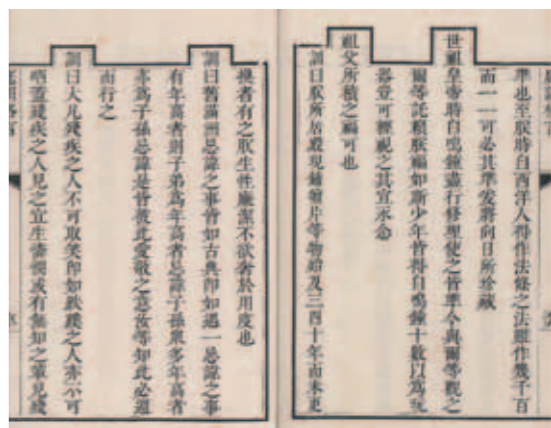 準也至朕時自西洋人得作法條之法雖作幾千百
而一一可必其準爰將向日所珍藏
世祖皇帝時自鳴鐘盡行修理使之皆準今與爾等觀之
爾等託賴朕福如斯少年皆得自鳴鐘十數以為玩
器豈可輕視之其宜永念
祖父所積之福可也
訓曰朕所居殿現鋪氊片等物殆及三四十年而未更
換者有之朕生性廉潔不欲奢於用度也
訓曰舊滿洲忌諱之事皆如古典即如遇一忌諱之事
有年高者則子弟為年高者忌諱子孫眾多年高者
亦為子孫忌諱是皆彼此愛敬之意汝等如此必遵
而行之
訓曰大凡殘疾之人不可取笑即如跌蹼之人亦不可
哂蓋殘疾之人見之宜生憐憫或有無知之輩見殘